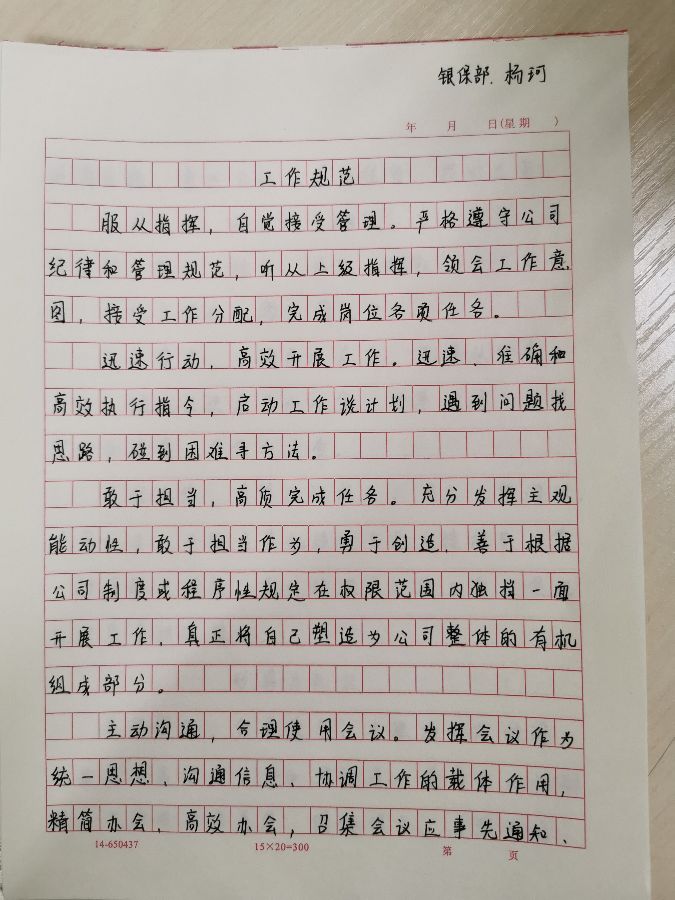 银保部. 杨珂
年 月 日(星期 )
工作规范
服从指挥，自觉接受管理。严格遵守公司
纪律和管理规范，听从上级指挥，领会工作意
图，接受工作分配，完成岗位各项任务。
迅速行动，高效开展工作。迅速、准确和
高效执行指令，启动工作设计划，遇到问题找
思路，碰到困难寻方法。
敢于担当，高质完成任务。充分发挥主观
能动性，敢于担当作为，勇于创造，善于根据
公司制度或程序性规定在权限范围内独挡一面
开展工作，真正将自己塑造为公司整体的有机
组成部分。
主动沟通，合理使用会议。发挥会议作为
统一思想、沟通信息、协调工作的载体作用，
精简办会、高效办会，召集会议应事先通知、
14-650437 15×20=300 第 页